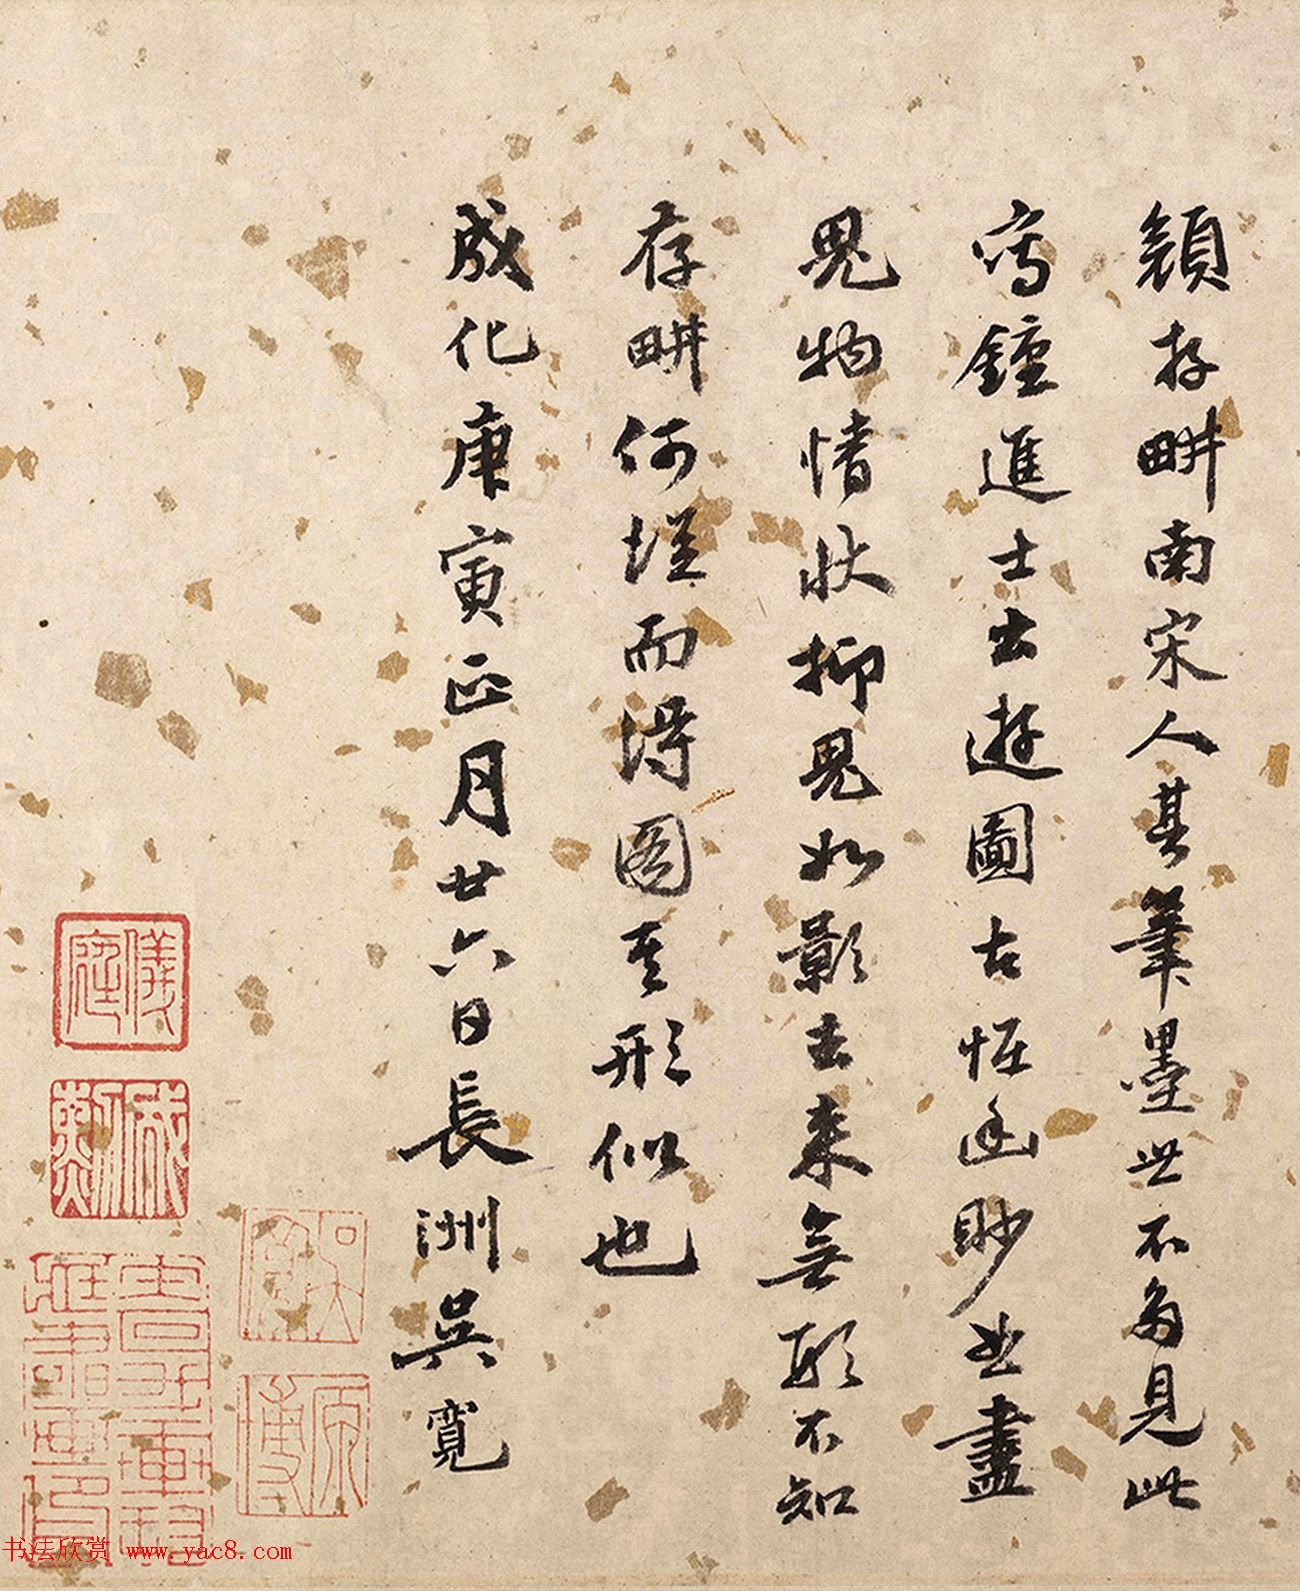 顔存畊南宋人其筆墨世不多見此
寫鍾進士出遊圖古怪幽眇曲盡
鬼物情狀抑鬼如影去來無形不知
存畊何從而得圖其形似也
成化庚寅正月廿六日長洲吳寬
吳寬
原博
书法欣赏 www.yac8.com